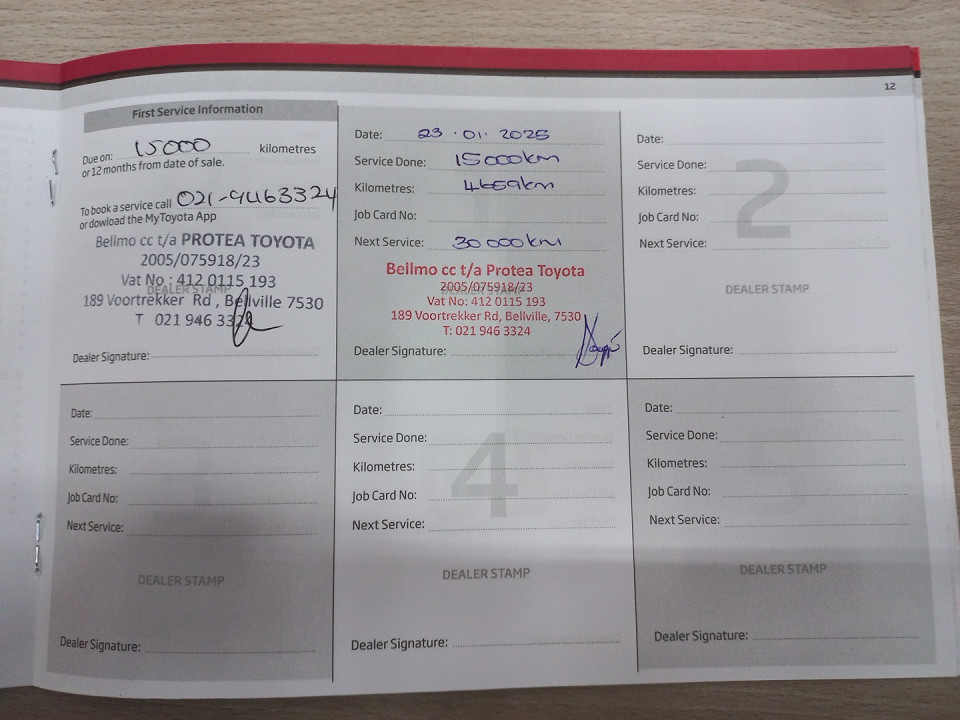 12
First Service Information
Due on: 15000 kilometres
or 12 months from date of sale.
To book a service call 021-9463324
or dowload the MyToyota App
Bellmo cc t/a PROTEA TOYOTA
2005/075918/23
Vat No : 412 0115 193
DEALER STAMP
189 Voortrekker Rd , Bellville 7530
T 021 946 3324
Dealer Signature:
1
Date: 23.01.2025
Service Done: 15000km
Kilometres: 4659km
Job Card No:
Next Service: 30000km
Bellmo cc t/a Protea Toyota
2005/075918/23
DEALER STAMP
Vat No: 412 0115 193
189 Voortrekker Rd, Bellville, 7530
T: 021 946 3324
Dealer Signature:
2
Date:
Service Done:
Kilometres:
Job Card No:
Next Service:
DEALER STAMP
Dealer Signature:
Date:
Service Done:
Kilometres:
Job Card No:
Next Service:
DEALER STAMP
Dealer Signature:
4
Date:
Service Done:
Kilometres:
Job Card No:
Next Service:
DEALER STAMP
Dealer Signature:
Date:
Service Done:
Kilometres:
Job Card No:
Next Service:
DEALER STAMP
Dealer Signature: